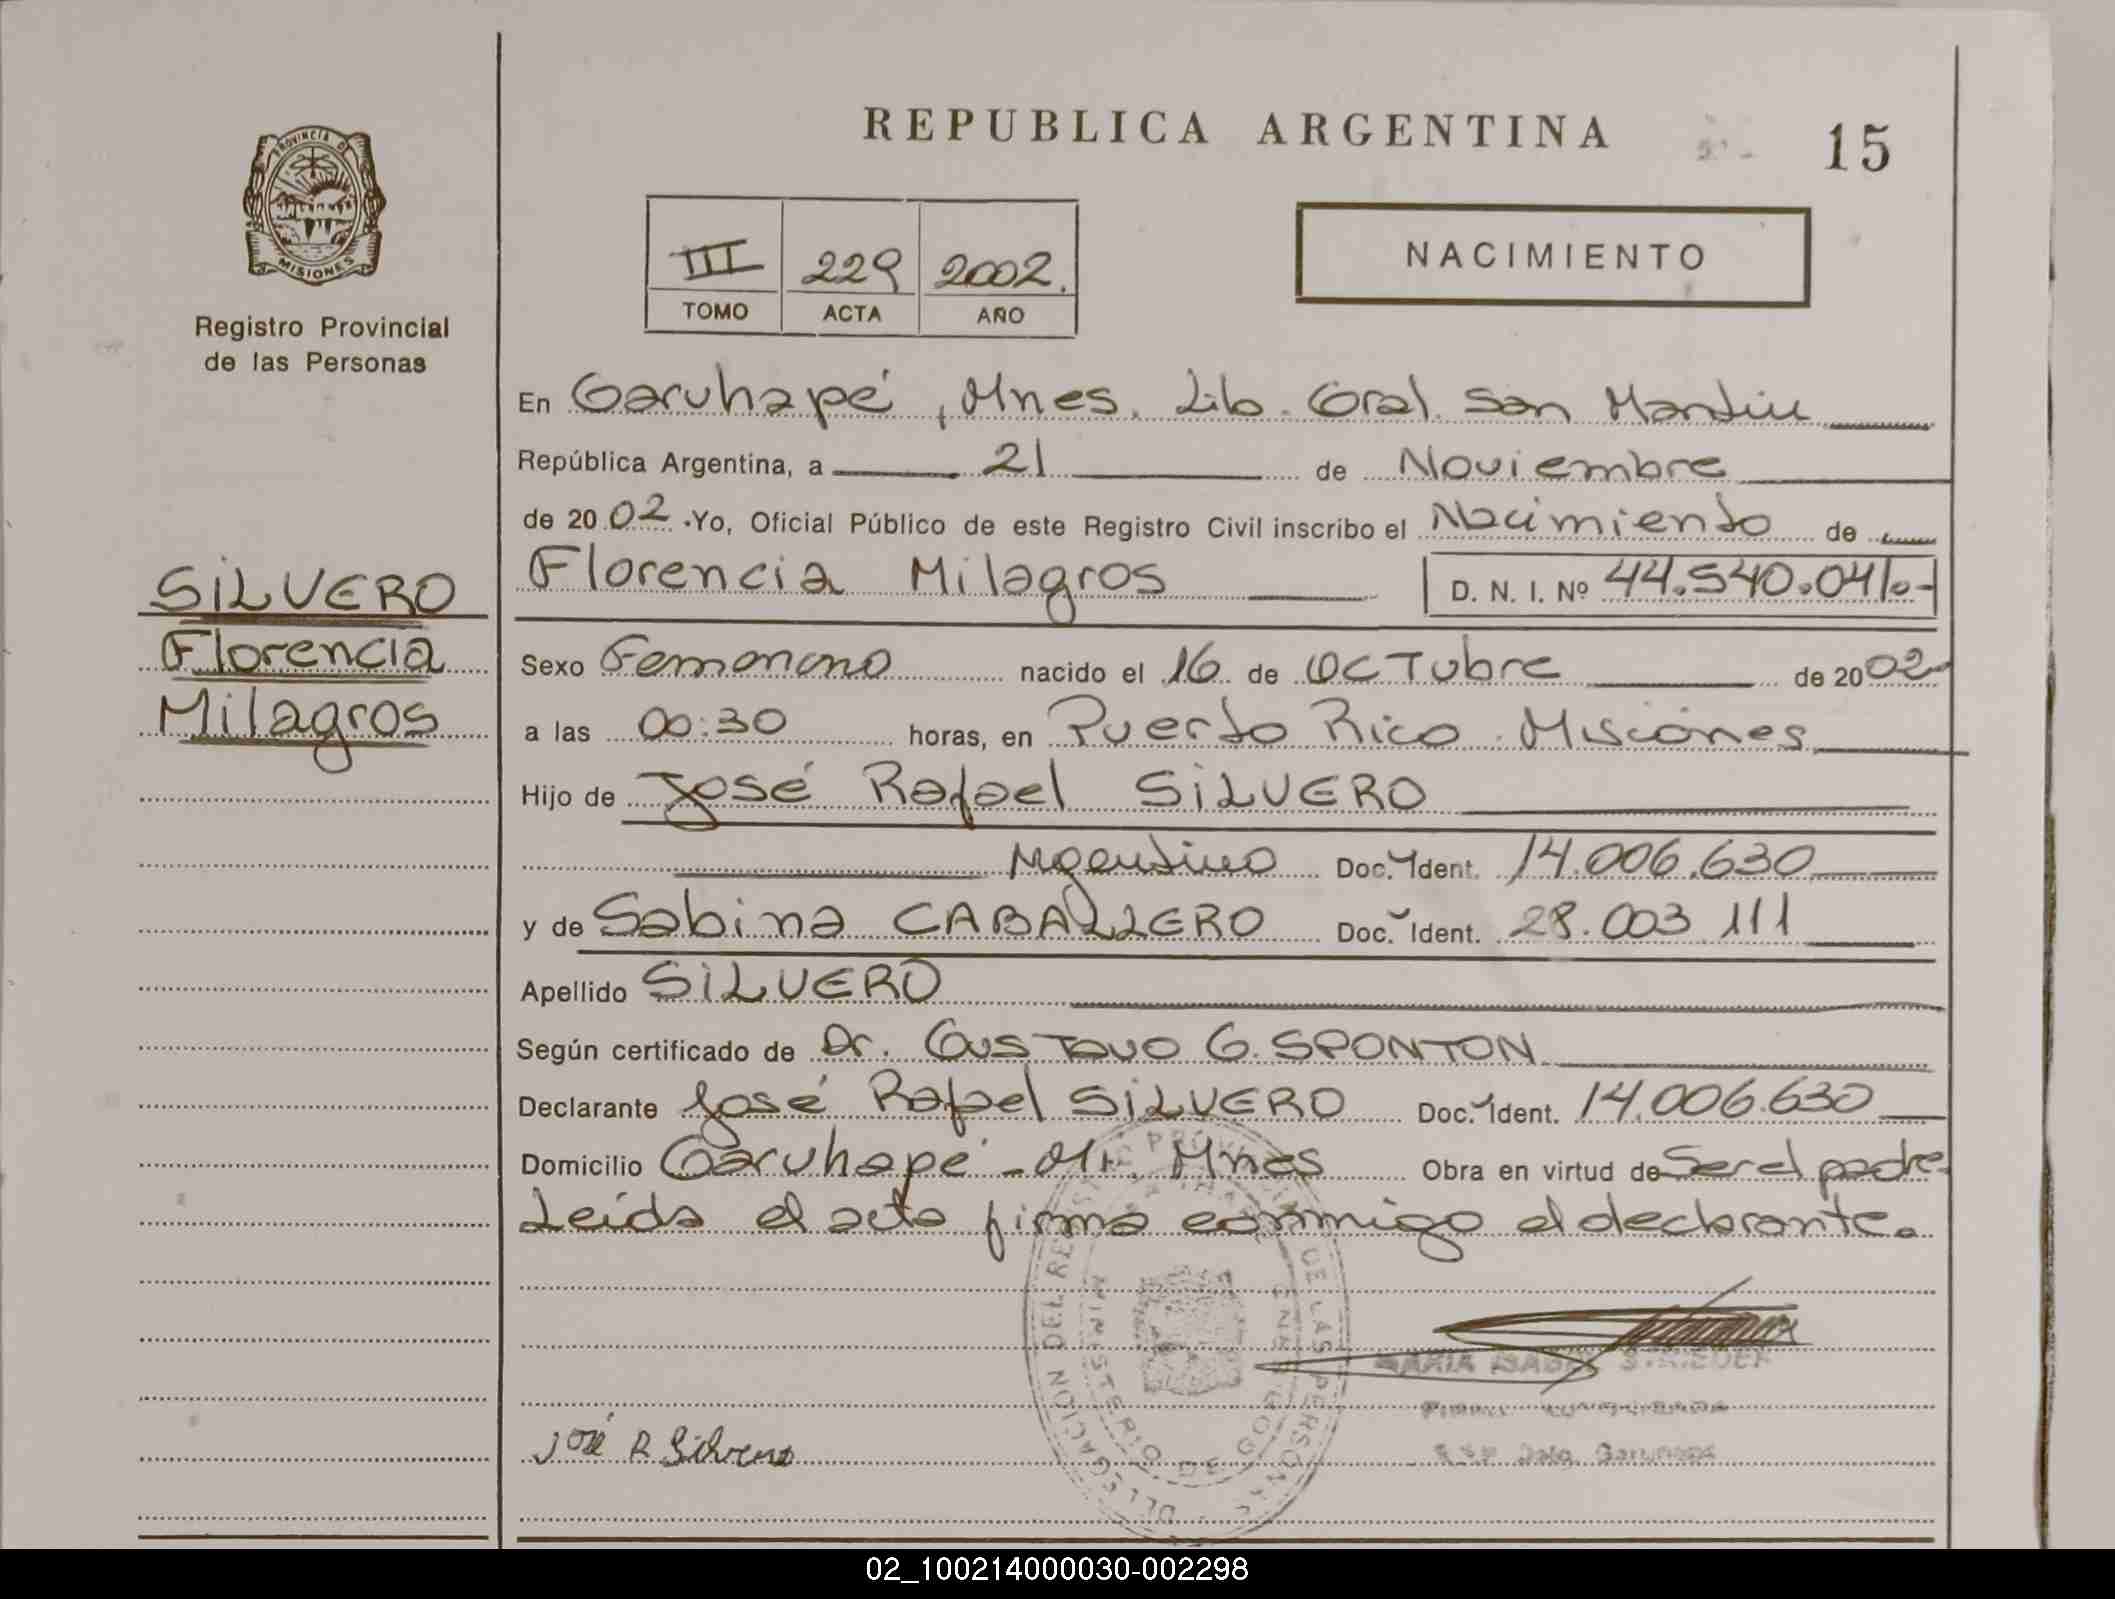 REPUBLICA ARGENTINA
15
PROVINCIA DE
MISIONES
Registro Provincial
de las Personas
III 229 2002.
TOMO ACTA AÑO
NACIMIENTO
En Garuhapé, Mnes. Lib. Gral. San Martín
República Argentina, a 21 de Noviembre
de 2002 .Yo, Oficial Público de este Registro Civil inscribo el Nacimiento de
Florencia Milagros D. N. I. Nº 44.540.041.-
SILVERO
Florencia
Milagros
Sexo Femenino nacido el 16 de OCTubre de 2002
a las 00:30 horas, en Puerto Rico. Misiones
Hijo de José Rafael SILVERO
Argentino Doc. Ident. 14.006.630
y de Sabina CABALLERO Doc. Ident. 28.003.111
Apellido SILVERO
Según certificado de Dr. GUSTAVO G. SPONTON
Declarante José Rafael SILVERO Doc. Ident. 14.006.630
Domicilio Garuhapé - Mi. Mnes Obra en virtud de Ser el padre
Leída el acta firma conmigo el declarante.
DELEGACION DEL REGISTRO PROVINCIAL DE LAS PERSONAS
MINISTERIO DE GOBIERNO
MARIA ISABEL
José R Silvero
02_100214000030-002298